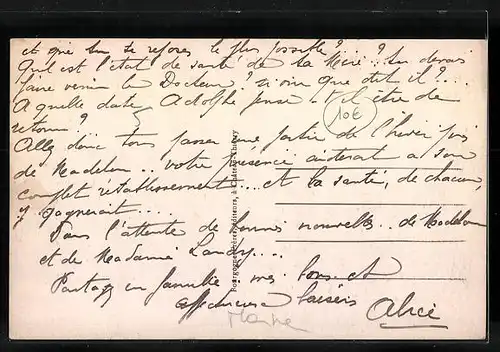 et que tu te reposes le plus possible ?.... ?
Quel est l'état de santé de ta Mère ?.. Tu devais
faire venir le Docteur ? si oui que dit il ?...
A quelle date Adolphe pense-t-il être de
retour ?
10€
Allez donc tous passer une partie de l'hiver près
de Madelon... votre présence aiderait a son
complet rétablissement... et la santé, de chacun,
y gagnerait....
Dans l'attente de bonnes nouvelles.. de Madelon
et de Madame Landry...
Partagez en famille.. mes bons et
affectueux baisers
Alice
Marne
Bourgogne Frères, éditeurs, à Château-Thierry